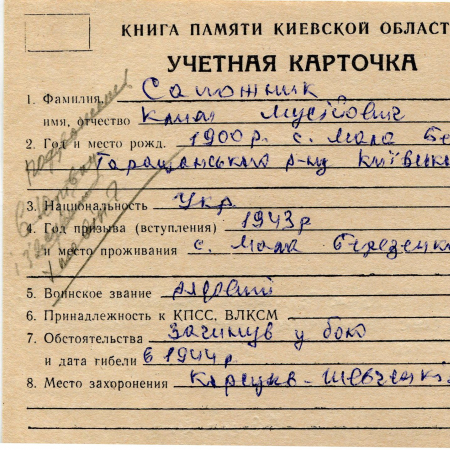 КНИГА ПАМЯТИ КИЕВСКОЙ ОБЛАСТ
УЧЕТНАЯ КАРТОЧКА
1. Фамилия, Сапожник
имя, отчество Клим Мусійович
2. Год и место рожд. 1900 р. с. Мала Бе
Таращанського р-ну Київськ
3. Национальность Укр.
4. Год призыва (вступления) 1943 р
и место проживания с. Мала Березянк
5. Воинское звание рядовий
6. Принадлежность к КПСС, ВЛКСМ
7. Обстоятельства Загинув у бою
и дата гибели в 1944 р.
8. Место захоронения Корсунь-Шевченк